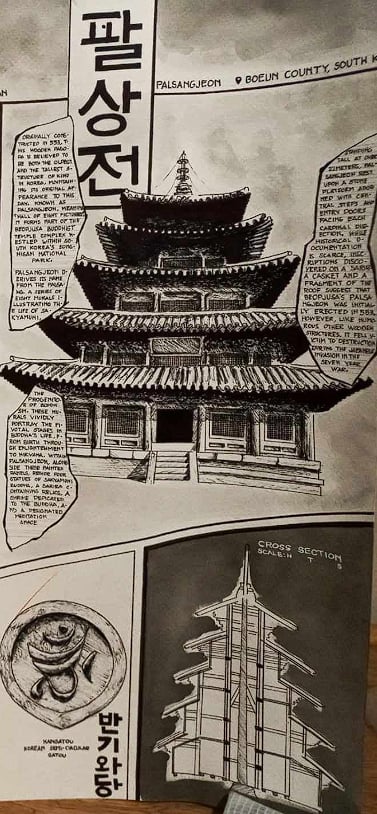 팔상전
PALSANGJEON
BOEUN COUNTY, SOUTH K
ORIGINALLY CONS-
TRUCTED IN 553, T-
HIS WOODEN PAGO-
DA IS BELIEVED TO
BE BOTH THE OLDEST
AND THE TALLEST S-
TRUCTURE OF KIND
IN KOREA, MAINTAIN-
ING ITS ORIGINAL AP-
PEARANCE TO THIS
DAY. KNOWN AS
PALSANGJEON, MEANING
"HALL OF EIGHT PICTURES",
IT FORMS PART OF THE
BEOPJUSA BUDDHIST
TEMPLE COMPLEX N-
ESTLED WITHIN SO-
UTH KOREA'S SONG-
NISAN NATIONAL
PARK.
PALSANGJEON D-
ERIVES ITS NAME
FROM THE PALSA-
NG, A SERIES OF
EIGHT MURALS I-
LLUSTRATING TH-
E LIFE OF SA-
KYAMUNI,
THE
PROGENITO-
R OF BUDDHI-
SM. THESE MU-
RALS VIVIDLY
PORTRAY THE PI-
VOTAL STAGES IN
BUDDHA'S LIFE, F-
ROM BIRTH THROU-
GH ENLIGHTENMENT
TO NIRVANA. WITHIN
PALSANGJEON, ALONG-
SIDE THESE PAINTED
PANELS, RESIDE FOUR
STATUES OF SAKYAMUNI
BUDDHA, A SARIRA C-
ONTAINING RELICS, A
SHRINE DEDICATED
TO THE BUDDHA, A-
ND A DESIGNATED
MEDITATION
SPACE
STANDING
TALL AT OVER
METERS, PAL-
SANGJEON REST
UPON A STONE
PLATFORM ADOR-
NED WITH CEN-
TRAL STEPS AND
ENTRY DOORS
FACING EACH
CARDINAL DIR-
ECTION. WHILE
HISTORICAL D-
OCUMENTATION
IS SCARCE, INSC-
RIPTIONS DISCO-
VERED ON A SARIRA
CASKET AND A
FRAGMENT OF THE
ROOF SUGGEST THAT
BEOPJUSA'S PALSA-
NGJEON WAS INITIAL-
LY ERECTED IN 553.
HOWEVER, LIKE NUME-
ROUS OTHER WOODEN
STRUCTURES, IT FELL V-
ICTIM TO DESTRUCTION
DURING THE JAPANESE
INVASION IN THE
SEVEN YEAR
WAR.
반기와당
KOREAN SEMI-CIRCULAR
CROSS SECTION
SCALE:H T S